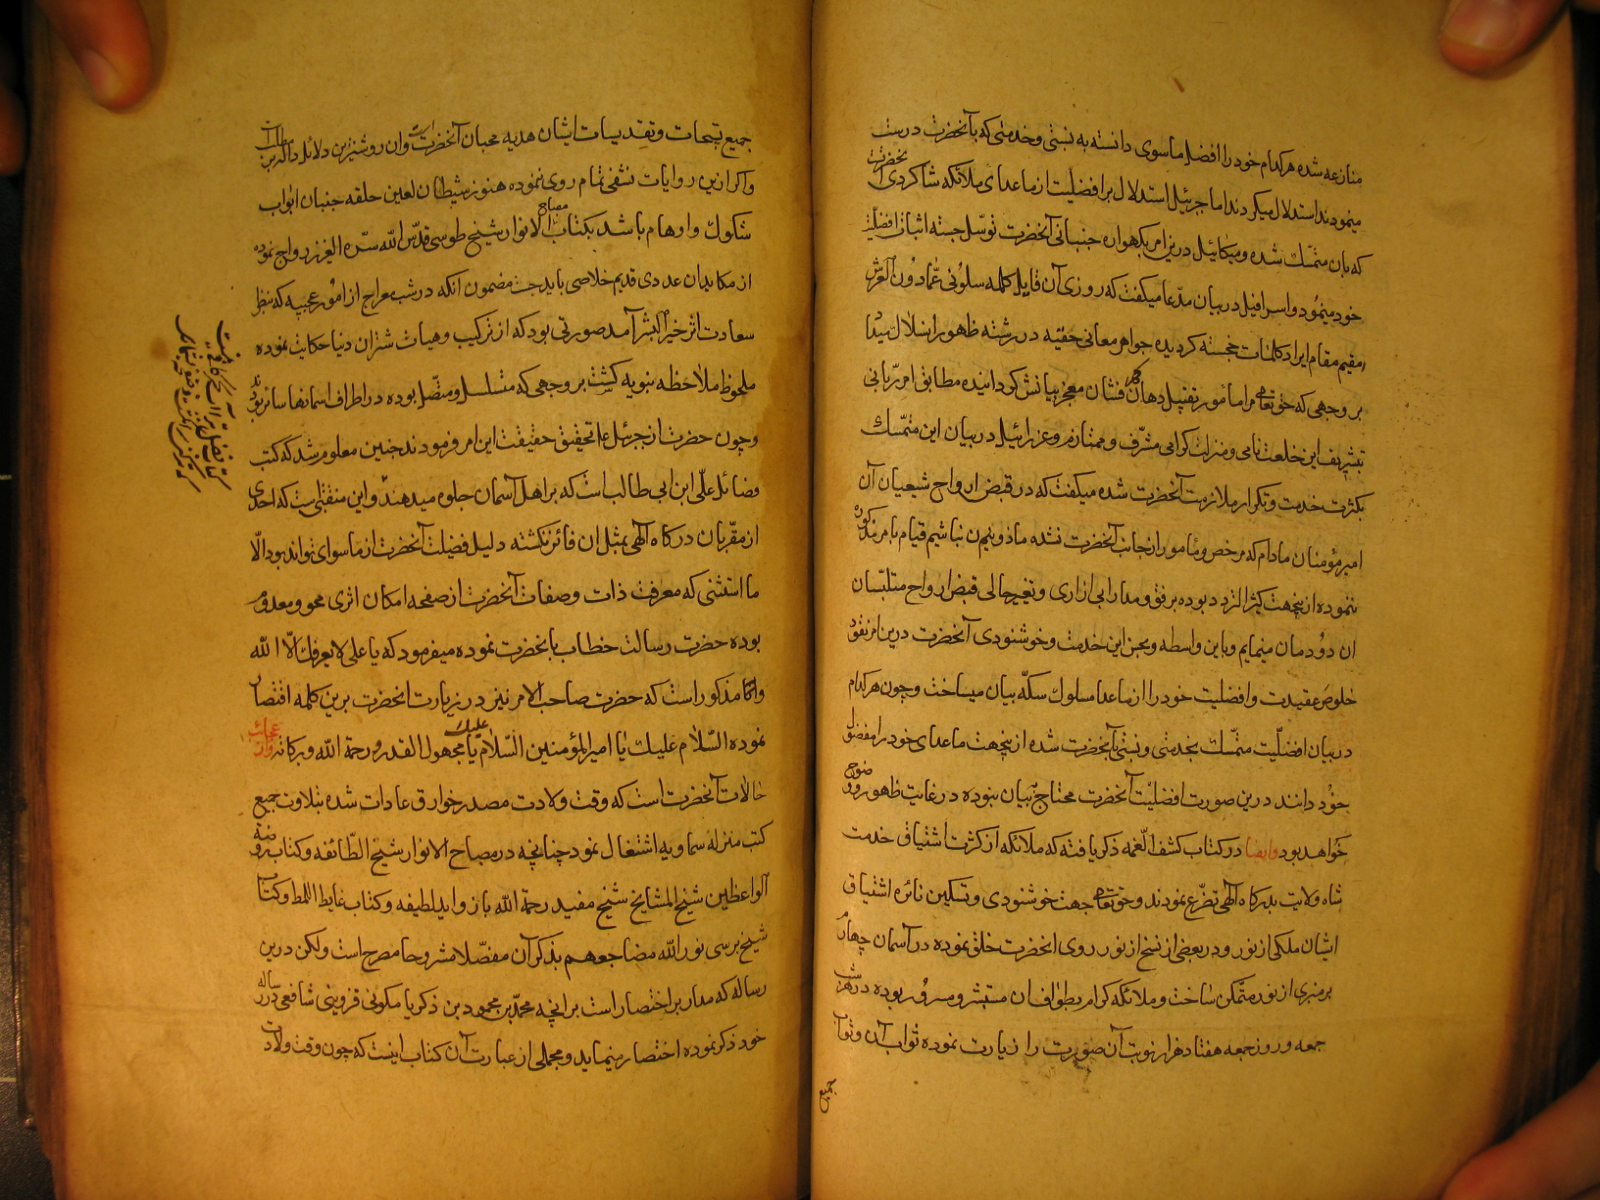 منازعه شده هر کدام خود را افضل ماسوی دانسته به نسبتی و خدمتی که بآنحضرت درست
مینمودند استدلال میکردند اما جبرئیل استدلال بر افضلیت از ماعدای ملائکه شاکردی آنحضرت
که بان متمسک شده و میکائیل درین امر بکهواره جنبانی آنحضرت توسل جسته اثبات افضلیت
خود مینمود و اسرافیل در بیان مدعا میکفت که روزی آن قایل کلمه سلونی عما دون العرش
مقیم مقام ایراد کلمات خجسته کردیده جواهر معانی حقیه در رشته ظهور انسلاک میداد
بر وجهی که حق تعالی مرا مامور بتقبیل دهان کهر فشان معجز بیانش کردانیده مطابق امر ربانی
بتشریف این خلعت نامی و منزلت کرامی مشرف و ممتازم و عزرائیل در بیان این متمسک
بکثرت خدمت و تکرار ملازمت آنحضرت شده میکفت که در قبض ارواح شیعیان آن
امیر مؤمنان مادام که مرخص و مامور از جانب آنحضرت نشده ماذون نباشم قیام بامر مذکور
ننموده ازینجهت کثیر التردد بوده برفق و مدارا بی ازاری و تغیر حالی قبض ارواح متلبسان
ان دودمان مینمایم و باین واسطه و بحسن این خدمت و خوشنودی آنحضرت درین امر تفوق
خلوص عقیدت و افضلیت خود را از ماعدا مسلوک سکه بیان میساخت و چون هر کدام
در بیان افضلیت متمسک بخدمتی و نسبتی بآنحضرت شده ازینجهت ماعدای خود را مفضل
بخود دانند درین صورت افضلیت آنحضرت محتاج ببیان نبوده در غایت ظهور و وضوح
خواهد بود وایضا در کتاب کشف الغمه ذکر یافته که ملائکه از کثرت اشتیاق خدمت
شاه ولایت بدرکاه الهی تضرع نمودند و حق تعالی جهت خوشنودی و تسکین نائره اشتیاق
ایشان ملکی از نور و در بعضی از نسخ از نور روی انحضرت خلق نموده در آسمان چهارم
بر منبری از نور متمکن ساخت و ملائکه کرام بطواف ان مستبشر و مسرور بوده در هر شب
جمعه و روز جمعه هفتاد هزار نوبت آن صورت را زیارت نموده ثواب آن و ثواب
جمیع
جمیع تسبیحات و تقدیسات ایشان هدیه محبان آنحضرت است وان روشنترین دلائل دال برین مطالب
واکر ازین روایات تشفی تمام روی ننموده هنوز شیطان لعین حلقه جنبان ابواب
شکوک و اوهام باشد بکتاب مصباح الانوار شیخ طوسی قدس الله سره العزیز رواج نموده
از مکاید ان عدوی قدیم خلاصی باید جست مضمون آنکه در شب معراج از امور عجیبه که بنظر
سعادت اثر خیر البشر آمد صورتی بود که از ترکیب و هیات شتران دنیا حکایت نموده
ملحوظ ملاحظه نبویه کشت بر وجهی که متسلسل و متصل بوده در اطراف اسمانها سائر بودند
و چون حضرت از جبرئیل علم تحقیق حقیقت این امر فرمودند چنین معلوم شد که کتب
فضائل علی ابن ابی طالب است که بر اهل آسمان جلوه میدهند و این منقبتی است که احدی
از مقربان درکاه الهی بمثل ان فائز نکشته دلیل فضیلت آنحضرت از ماسوای تواند بود الا
ما استثنی که معرفت ذات و صفات آنحضرت از صفحه امکان اثری محو و معدوم
بوده حضرت رسالت خطاب بانحضرت نموده میفرمود که یا علی لا یعرفک الا الله
وانا مذکور است که حضرت صاحب الامر نیز در زیارت انحضرت برین کلمه اقتصار
نموده السلام علیک یا امیر المؤمنین السلام علیک یا مجهول القدر و رحمة الله و برکاته
حالات آنحضرت است که وقت ولادت مصدر خوارق عادات شده بتلاوت جمیع
کتب منزله سماویه اشتغال نمود چنانچه در مصباح الانوار شیخ الطائفه و کتاب روضة
الواعظین شیخ المشایخ شیخ مفید رحمة الله باز واید لطیفه و کتاب
شیخ برسی نور الله مضاجعهم بذکر آن مفصلا مشروحا مصرح است ولکن درین
رساله که مدار بر اختصار است بر انچه محمد بن محمود بن ذکریا مکونی قزوینی شافعی در رساله
خود ذکر نموده اختصار مینماید و مجملی از عبارت آن کتاب اینست که چون وقت ولادت
کتاب فضل ترا آب بحر کافی نیست
که تر کنی سر انکشت و صفحه بشماری